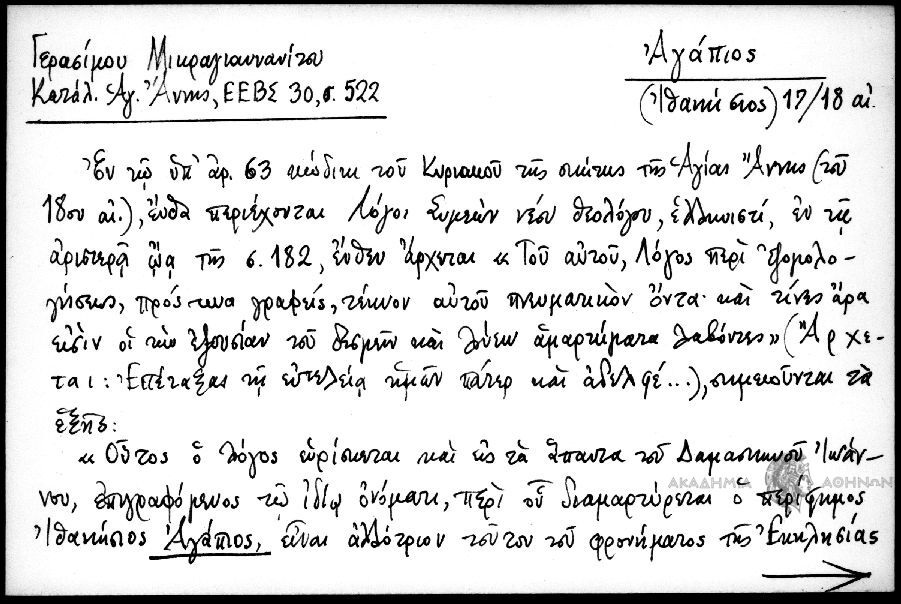 Γερασίμου Μικραγιαννανίτου
Κατάλ. Ἁγ. Ἄννης, ΕΕΒΣ 30, σ. 522
Ἀγάπιος
(Ἰθακήσιος) 17/18 αἰ.
Ἐν τῷ ὑπ' ἀρ. 63 κώδικι τοῦ Κυριακοῦ τῆς σκήτης τῆς Ἁγίας Ἄννης (τοῦ
18ου αἰ.), ἔνθα περιέχονται Λόγοι Συμεὼν νέου θεολόγου, ἑλληνιστί, ἐν τῇ
ἀριστερᾷ ᾤᾳ τῆς σ. 182, ἔνθεν ἄρχεται « Τοῦ αὐτοῦ, Λόγος περὶ ἐξομολο-
γήσεως, πρός τινα γραφείς, τέκνον αὐτοῦ πνευματικὸν ὄντα· καὶ τίνες ἄρα
εἰσὶν οἱ τὴν ἐξουσίαν τοῦ δεσμεῖν καὶ λύειν ἁμαρτήματα λαβόντες» (Ἄρχε-
ται: Ἐπέταξας τῇ εὐτελείᾳ ἡμῶν πάτερ καὶ ἀδελφέ...), σημειοῦνται τὰ
ἑξῆς:
« Οὗτος ὁ λόγος εὑρίσκεται καὶ εἰς τὰ ἅπαντα τοῦ Δαμασκηνοῦ Ἰωάν-
νου, ἐπιγραφόμενος τῷ ἰδίῳ ὀνόματι, περὶ οὗ διαμαρτύρεται ὁ περίφημος
Ἰθακήσιος Ἀγάπιος, εἶναι ἀλλότριον τοῦτον τοῦ φρονήματος τῆς Ἐκκλησίας
ΑΚΑΔΗΜΙΑ ΑΘΗΝΩΝ